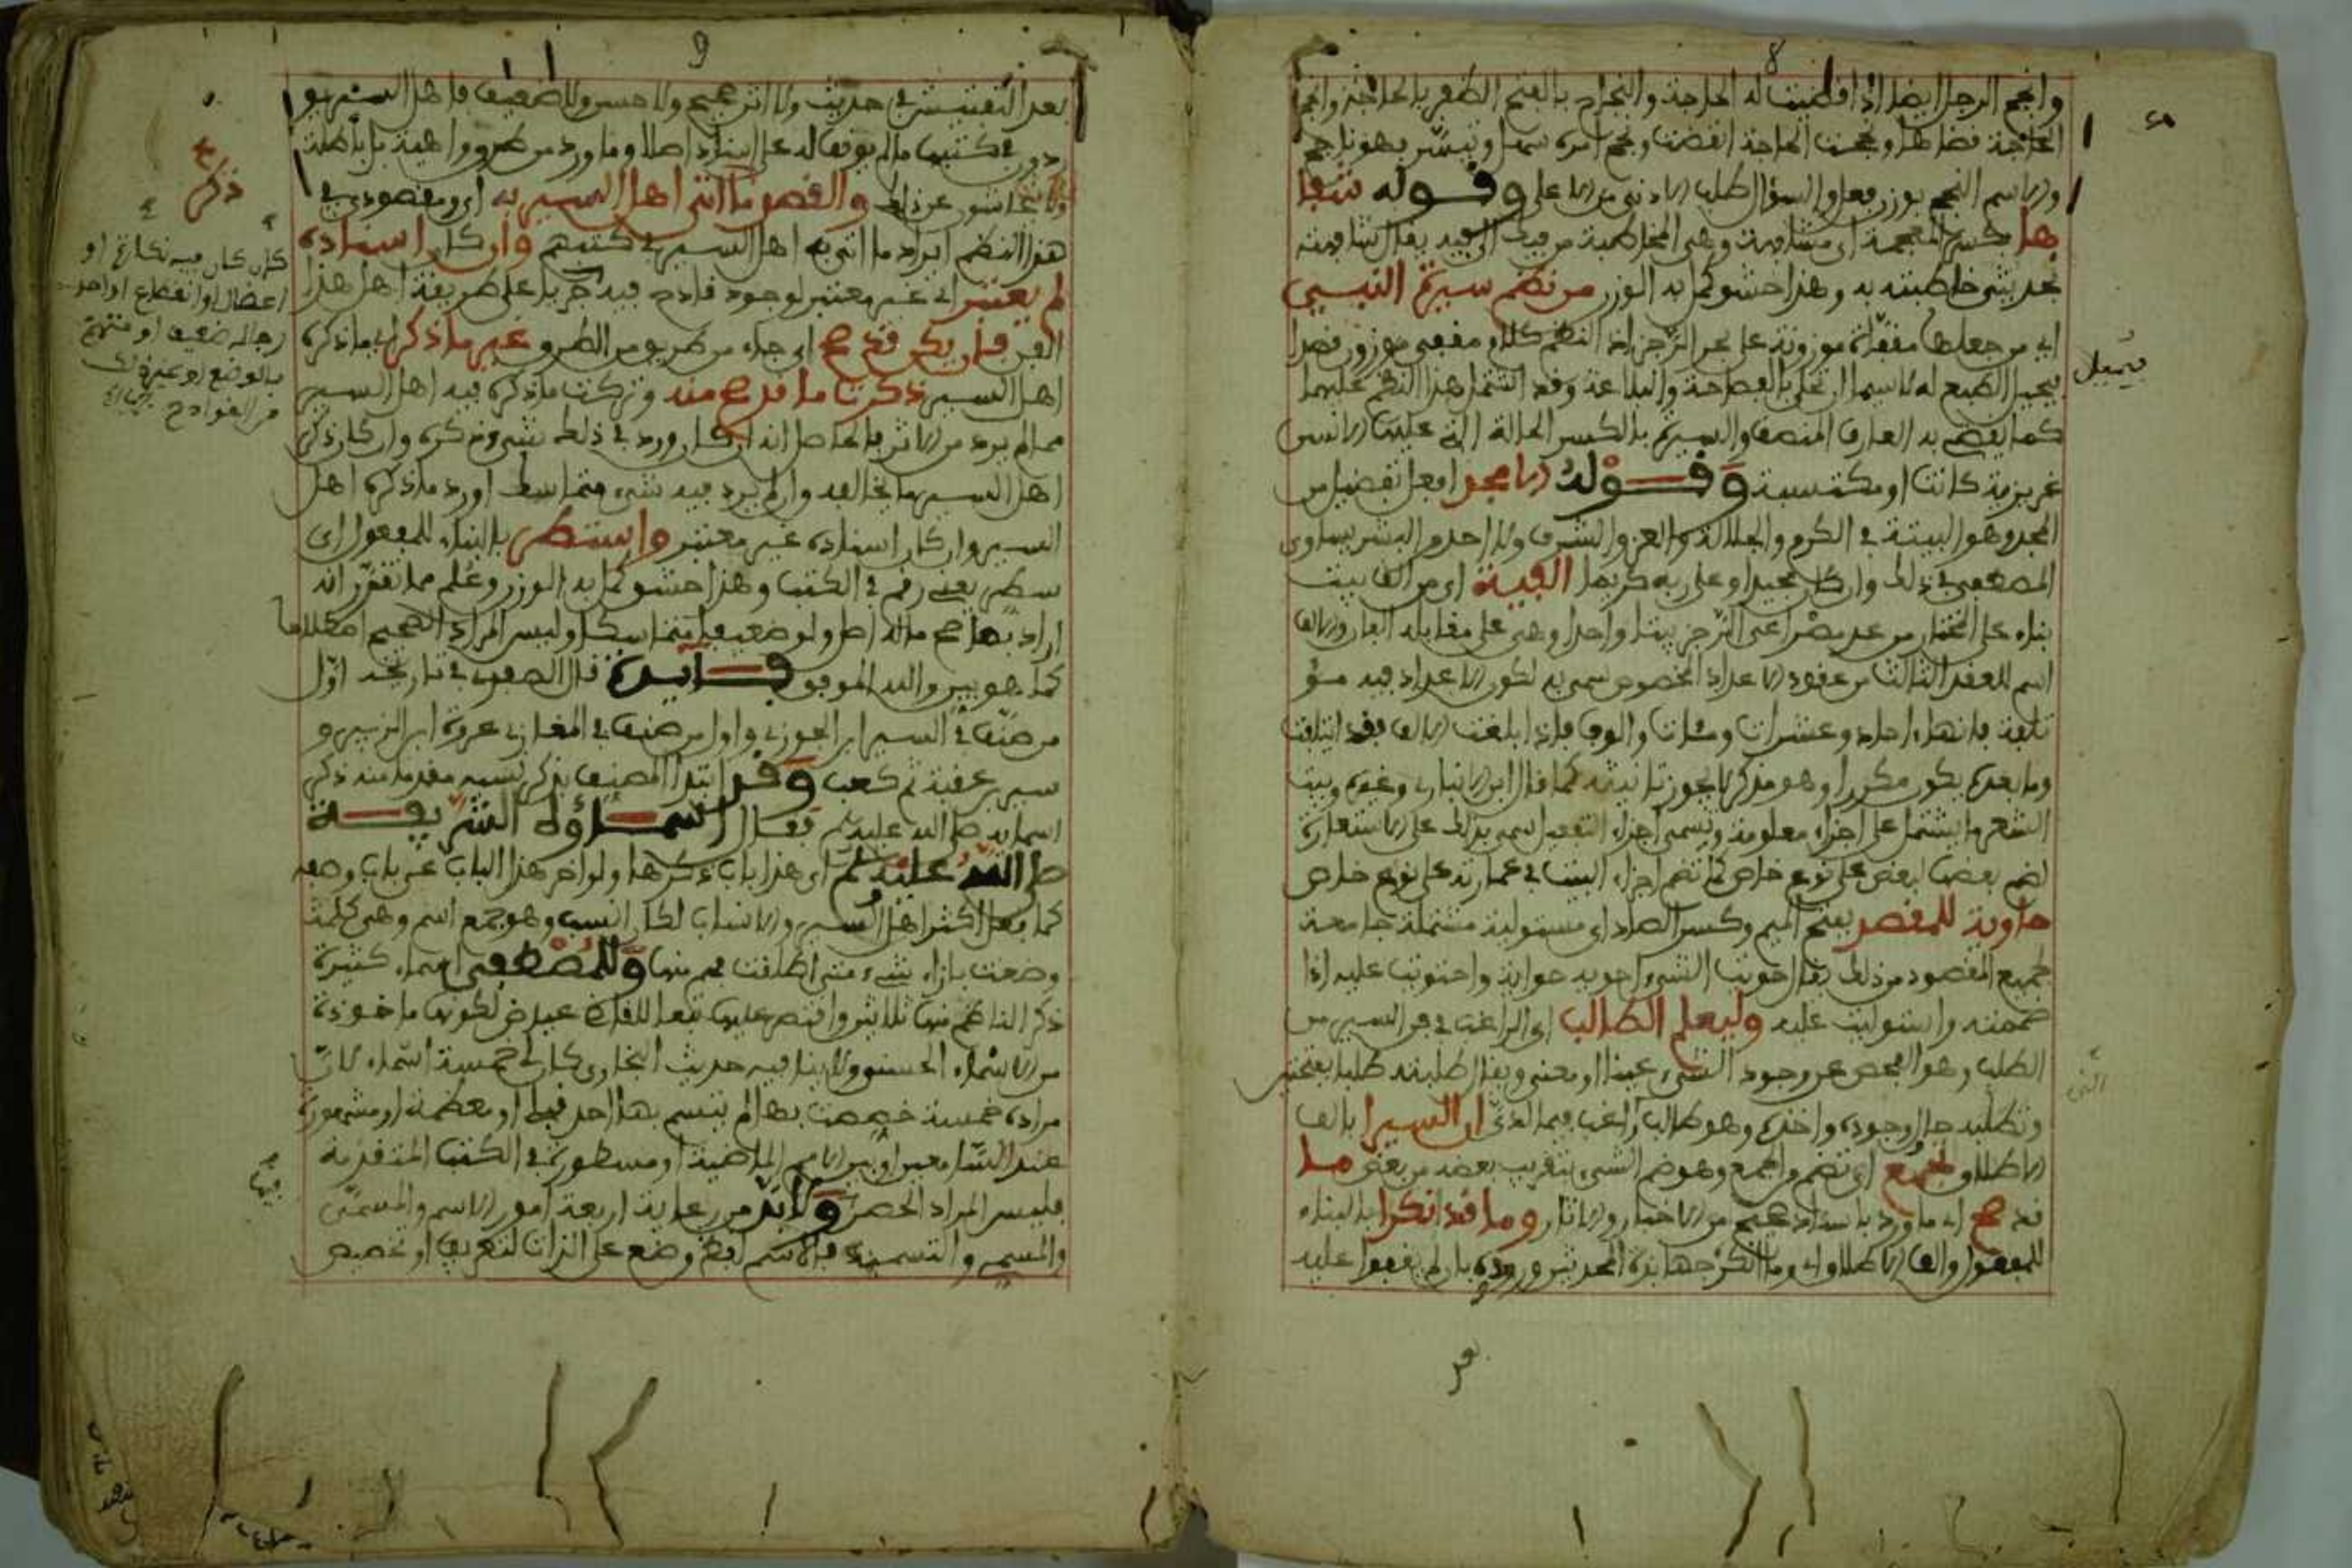 8
وانجح الرجل ايضا اذا قضيت له الحاجة والنجاح بالفتح الظفر بالحاجة وانجح
الحاجة قضاها ونجحت الحاجة انقضت ونجح امره سهل وتيسر فهو ناجح
والاسم النجح بوزن فعل والسؤال طلب الادنى من الاعلى وقوله شفا
ها بكسر المعجمة اي مشافهة وهي المخاطبة من فيك الى فيه يقال شافهته
بحديثي خاطبته به وهذا حشو كمل به الوزن من نظم سيرة النبي
اي من جعلها مقفاة موزونة على بحر الرجز اذ النظم كلام مقفى موزون قصدا
يميل
فيميل الطبع له لا سيما ان تحلى بالفصاحة والبلاغة وقد اشتمل هذا النظم عليهما
كما يقضي به العارف المنصف والسيرة بالكسر الحالة التي عليها الانسان
غريزية كانت او مكتسبة وقوله الامجد افعل تفضيل من
المجد وهو النهاية في الكرم والجلالة والعز والشرف ولا احد من البشر يساوي
المصطفى في ذلك وان كان مجيدا وعلى ربه كريما الفية اي من الف بيت
بناء على المختار من عد مصراعي الرجز بيتا واحدا وهي على مقابله الفان والالف
اسم للعقد الثالث من عقود الاعداد المخصوص سمي به لكون الاعداد فيه مؤ
تلفة فانها احاد وعشرات ومئات والوف فاذا بلغت الالف فقد ائتلفت
وما بعده يكون مكررا وهو مذكر لا يجوز تانيثه كما قال ابن الانباري وغيره وبيت
الشعر ما يشتمل على اجزاء معلومة وتسمى اجزاء التفعيل سمي بذلك على الاستعارة
لضم بعضها لبعض على نوع خاص كما تضم اجزاء البيت في عمارته على نوع خاص
حاوية للمقصد بفتح الميم وكسر الصاد اي مستولية مشتملة جامعة
لجميع المقصود من ذلك يقال حويت الشيء احويه حواية واحتويت عليه اذا
ضممته واستوليت عليه وليعلم الطالب اي الراغب في فن السير من
الطلب وهو الفحص عن وجود الشيء عينا او معنى ويقال طلبته طلبا بمعنى
وتطلبه حاول وجوده واخذه وهو طالب راغب فيما لديّ ان السيرا بالف
الاطلاق تجمع اي تضم والجمع وهو ضم الشيء بتقريب بعضه من بعض ما
قد صح اي ما ورد باسناد صحيح من الاخبار والاثار وما قد انكرا بالبناء
للمفعول والف الاطلاق اي وما انكر جهابذة المحدثين وروده بان لم يقفوا عليه
9
بعد التفتيش في حديث ولا اثر صحيح ولا حسن ولا ضعيف فاهل السير يو
ردون في كتبهم ما لم يوقف له على اسناد اصلا وما ورد من طرق واهية بل باطلة
ولا يتحاشون عن ذلك والقصد ما اتى اهل السير به اي ومقصودي في
هذا النظم ايراد ما اتى به اهل السير في كتبهم وان كان اسناده
لم يعتبر اي غير معتبر لوجود قادح فيه جريا على طريقة اهل هذا
الفن فان يكن قد صح اي جاء من طريق من الطرق غير ما ذكر اي ما ذكره
اهل السير ذكرت ما قد صح منه وتركت ما ذكره فيه اهل السير
مما لم يرد من الاثر فالحاصل انه ان كان ورد في ذلك شيء ذكره وان كان ذكر
اهل السير ما يخالفه وان لم يرد فيه شيء متماسك اورد ما ذكره اهل
السير وان كان اسناده غير معتبر واستطر بالبناء للمفعول اي
سطر يعني رقم في الكتب وهذا حشو كمل به الوزن وعلم مما تقرر انه
اراد بما صح ما له اصل ولو ضعيفا متماسكا وليس المراد الصحيح اصطلاحا
كما هو بين والله الموفق فائدة قال الصفدي في تاريخه اول
من صنف في السير ابن الجوزي واول من صنف في المغازي عروة ابن الزبير و
اسمائه صلى الله عليه وسلم فقال اسماؤه الشريفة
صلى الله عليه وسلم اي هذا باب ذكرها ولو اخر هذا الباب عن باب وصفه
كما فعل اكثر اهل السير والانساب لكان انسب وهو جمع اسم وهي كلمة
وضعت بازاء شيء متى اطلقت فهم منها وللمصطفى اسماء كثيرة
ذكر الناظم منها ثلاثين واقتصر عليها تبعا للقاضي عياض لكونها ماخوذة
من الاسماء الحسنى ولا ينافيه حديث البخاري كان لي خمسة اسماء لان
مراده خمسة خصصت بها لم يتسم بها احد قبلي او معظمة او مشهورة
فليس المراد الحصر ولا بد من رعاية اربعة امور الاسم والمسمى
والمسمي والتسمية فالاسم لفظ وضع على الذات لتعريف او تخصيص
ذكر
كان كان فيه نكارة او
اعضال او انقطاع او احد
رجاله ضعيف او متهم
بالوضع او غير ذلك
من القوادح